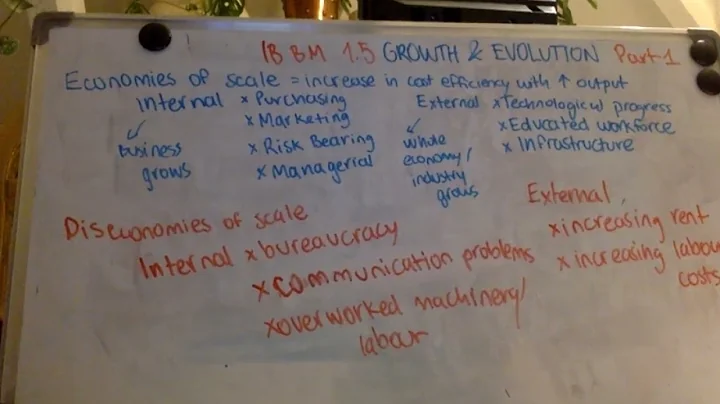 IB BM 1.5 GROWTH & EVOLUTION Part 1
Economies of scale = increase in cost efficiency with ↑ output
Internal x Purchasing
x Marketing
x Risk Bearing
x Managerial
business
grows
External x Technological progress
x Educated workforce
x Infrastructure
whole
economy/
industry
grows
Diseconomies of scale
Internal x bureaucracy
x communication problems
x overworked machinery/
labour
External
x increasing rent
x increasing labour
costs